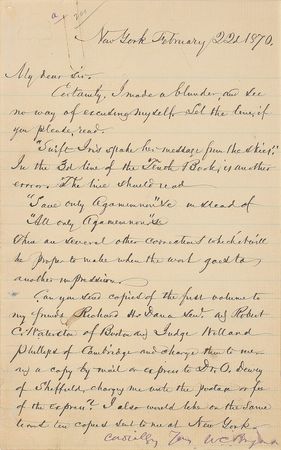 New York February 22d 1870.
My dear Sir.
Certainly, I made a blunder, and see
no way of excusing myself. Let the line, if
you please, read.
"Swift Iris spake her message from the skies."
In the 3rd line of the Tenth Book, is another
error. The line should read
"Save only Agamemnon" &c instead of
"All only Agamemnon" &c
There are several other corrections which it will
be proper to make when the work goes to
another impression.
Can you send copies of the first volume to
my friends Richard H. Dana Senr. and Robert
C. Waterston of Boston and Judge Willard
Phillips of Cambridge and charge them to me—
and a copy by mail or express to Dr. O. Dewey
of Sheffield, charging me with the postage or fee
of the express? I also would like on the same
terms ten copies sent to me at New York.
cordially Yours W C Bryant